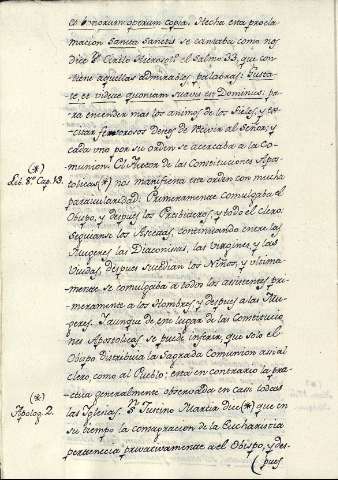 et bonorum operum copia. Hecha esta procla-
macion Sancta Sanctis se cantaba como nos
dice Sn. Cirilo Hierosol. el Salmo 33, que con-
tiene aquellas admirables palabras: Gusta-
te, et videte quoniam suavis est Dominus; pa-
ra encender mas los animos de los Fieles, y ex-
citar fervorosos deseos de recivir al Señor; y
cada uno por su orden se acercaba a la Co-
munion. El Autor de las Constituciones Apos-
(*)
Lib. 8.º Cap. 13.
tolicas (*) nos manifiesta este orden con mucha
particularidad. Primeramente comulgaba el
Obispo, y despues los Presbiteros, y todo el clero:
seguianse los Ascetas, continuando entre las
Mugeres las Diaconisas, las Virgines, y las
Viudas, despues sucedian los Niños, y ultima-
mente se comulgaba a todos los asistentes pri-
meramente a los Hombres, y despues a las Mu-
geres. Y aunque de este lugar de las Constitucio-
nes Apostolicas se puede inferir, que solo el
Obispo distribuia la Sagrada Comunion asi al
clero, como al Pueblo; está en contrario la prac-
tica generalmente observada en casi todas
(*)
Apolog. 2.
las Iglesias. Sn. Justino Martir dice (*) que en
su tiempo la consagracion de la Eucharistia
pertenecia privativamente a el Obispo, y des-
pues